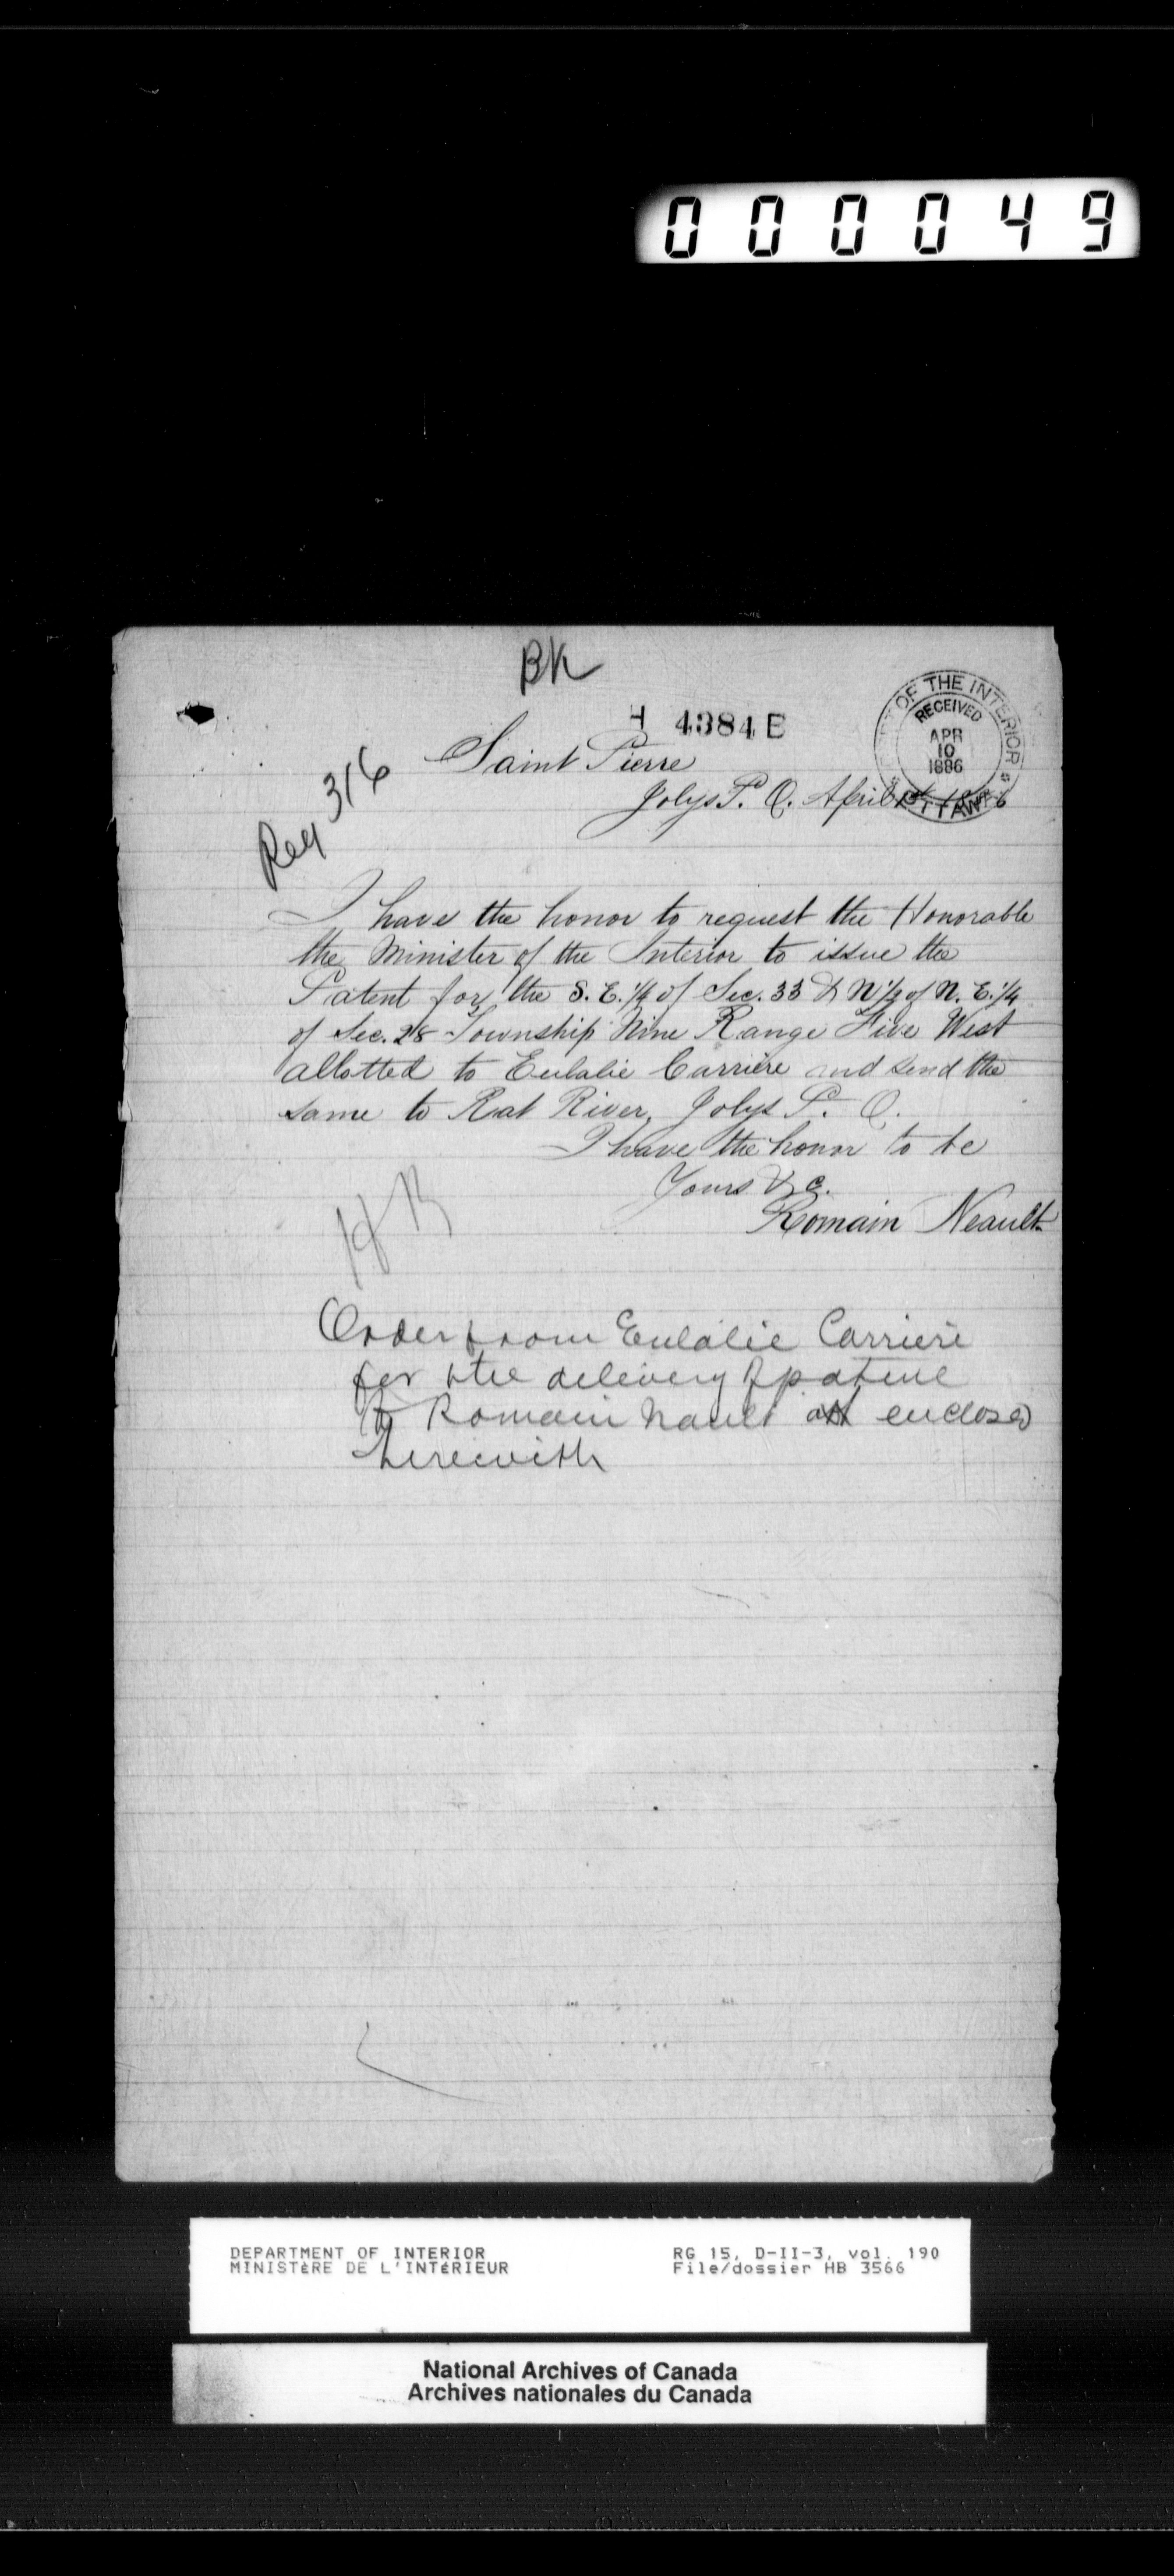 000049
BK
H 4384 E
DEPT OF THE INTERIOR
RECEIVED
APR
10
1886
OTTAWA
Saint Pierre
Jolys P. O. April 1886
Reg 316
I have the honor to request the Honorable
the Minister of the Interior to issue the
Patent for the S. E. 1/4 of Sec. 33 & N 1/2 of N. E. 1/4
of Sec. 28 Township Nine Range Five West
allotted to Eulalie Carrière and send the
same to Rat River, Jolys P. O.
I have the honor to be
Yours &c.
Romain Neault
HB
Order from Eulalie Carriere
for the delivery of patent
to Romain Nault enclosed
herewith
DEPARTMENT OF INTERIOR
MINISTÈRE DE L'INTÉRIEUR
RG 15, D-II-3, vol. 190
File/dossier HB 3566
National Archives of Canada
Archives nationales du Canada